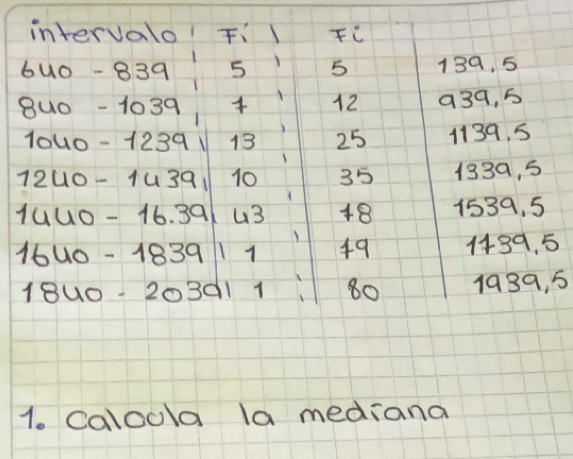 intervalo Fi Fi
640 - 839 5 5 739,5
840 - 1039 7 12 939,5
1040 - 1239 13 25 1139,5
1240 - 1439 10 35 1339,5
1440 - 16.39 43 78 1539,5
1640 - 1839 1 79 1739,5
1840 - 2039 1 80 1939,5
1. Calcula la mediana